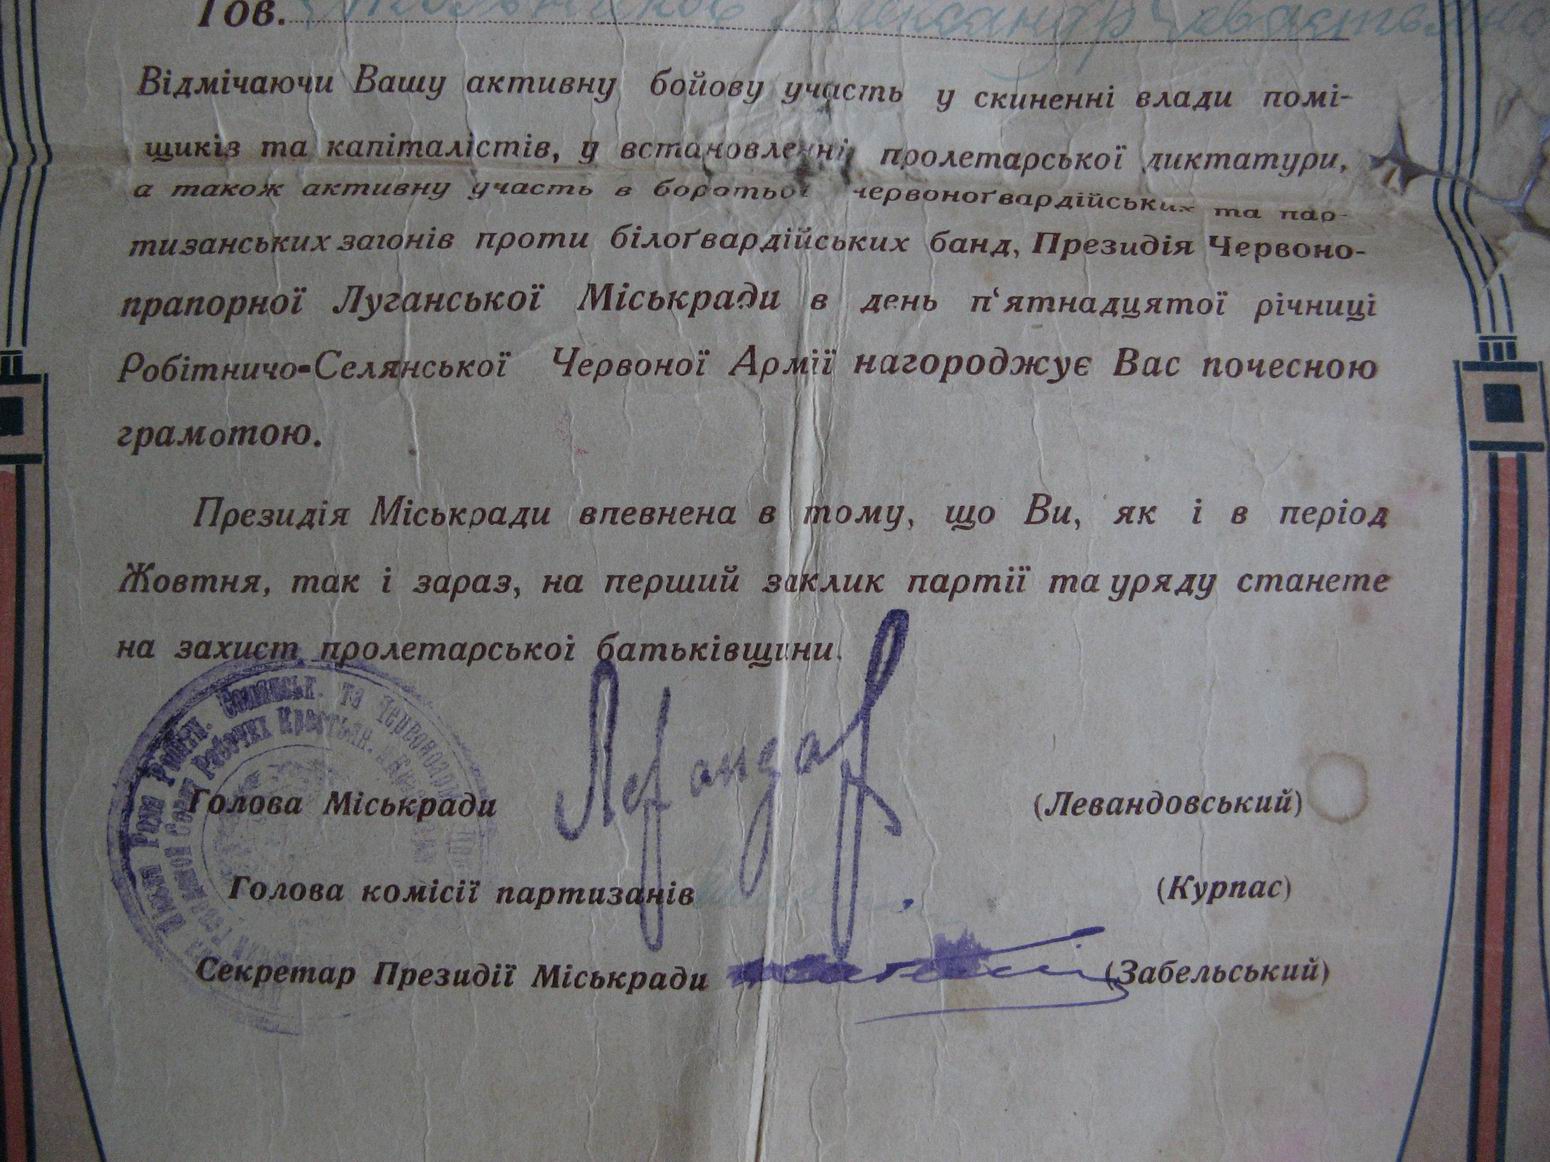 Тов. Александр
Відмічаючи Вашу активну бойову участь у скиненні влади помі-
щиків та капіталістів, у встановленні пролетарської диктатури,
а також активну участь в боротьбі червоноґвардійських та пар-
тизанських загонів проти білоґвардійських банд, Президія Червоно-
прапорної Луганської Міськради в день п‘ятнадцятої річниці
Робітничо-Селянської Червоної Армії нагороджує Вас почесною
грамотою.
Президія Міськради впевнена в тому, що Ви, як і в період
Жовтня, так і зараз, на перший заклик партії та уряду станете
на захист пролетарської батьківщини.
Голова Міськради (Левандовський)
Голова комісії партизанів (Курпас)
Секретар Президії Міськради (Забельський)
Робітн. Селянськ. та Червоноарм.
Рабочих Крестьян.